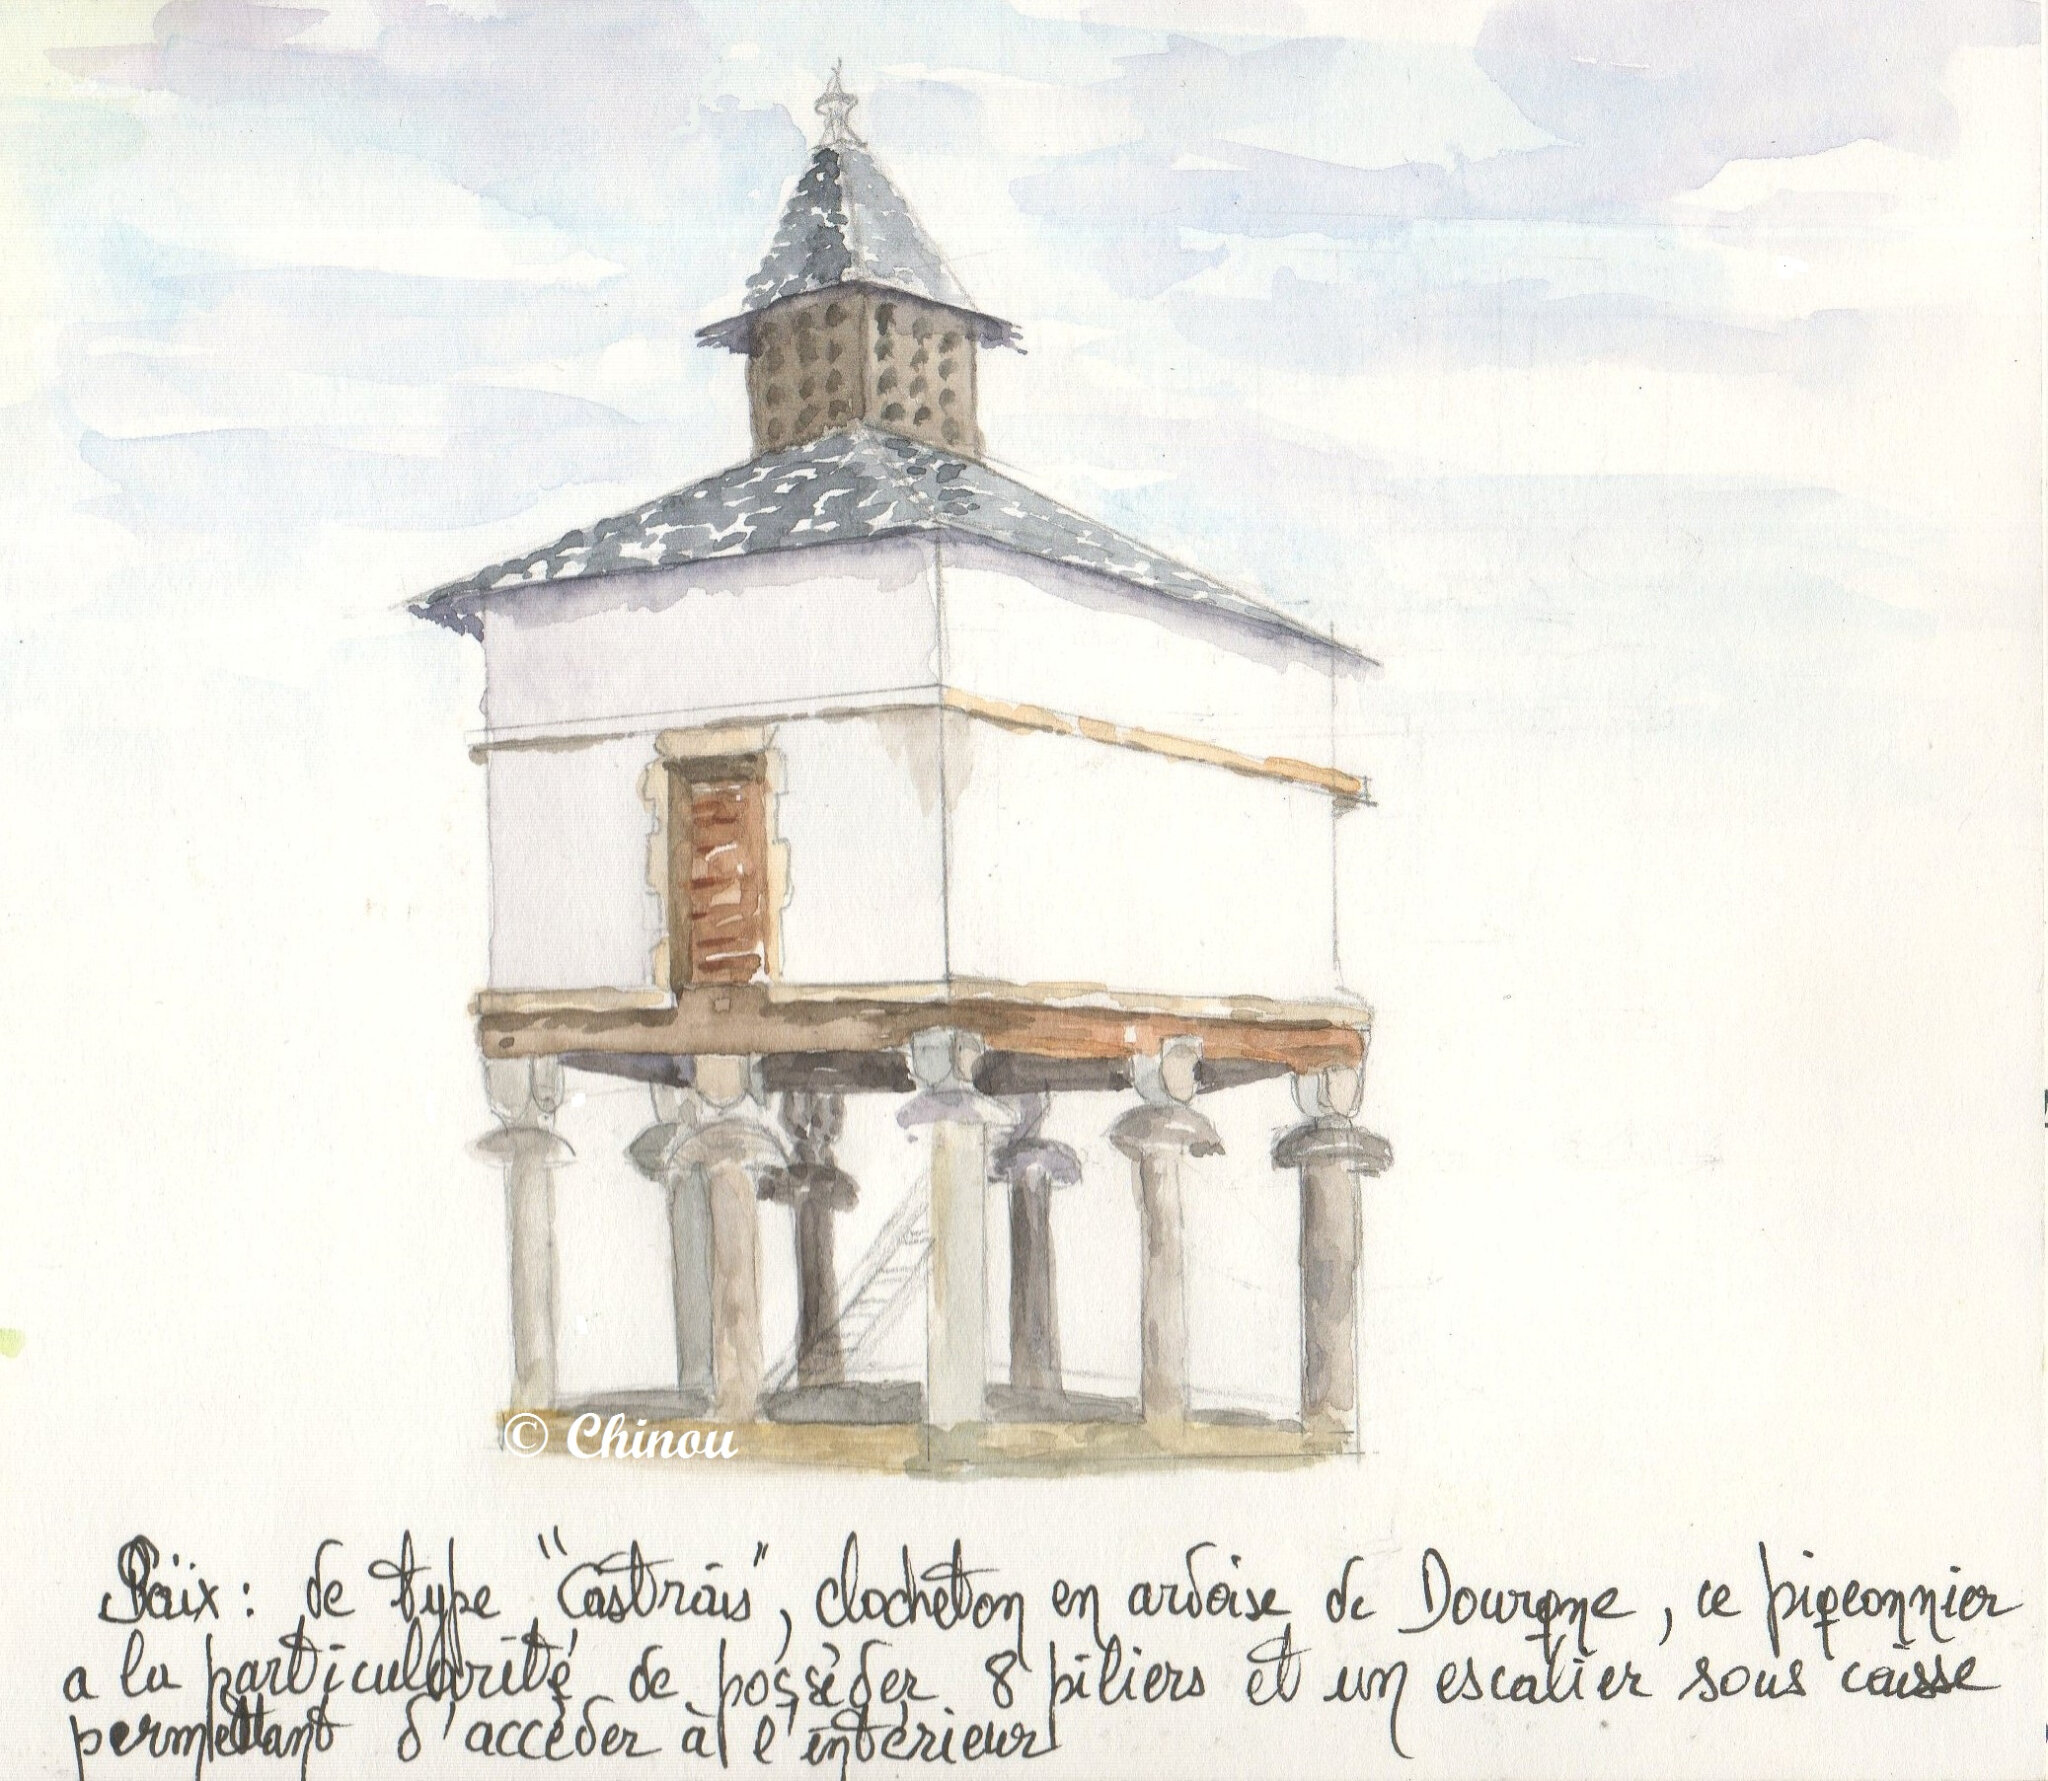 © Chinou
Païx : de type "Castrais", clocheton en ardoise de Dourgne, ce pigeonnier
a la particularité de posséder 8 piliers et un escalier sous caisse
permettant d'accéder à l'intérieur